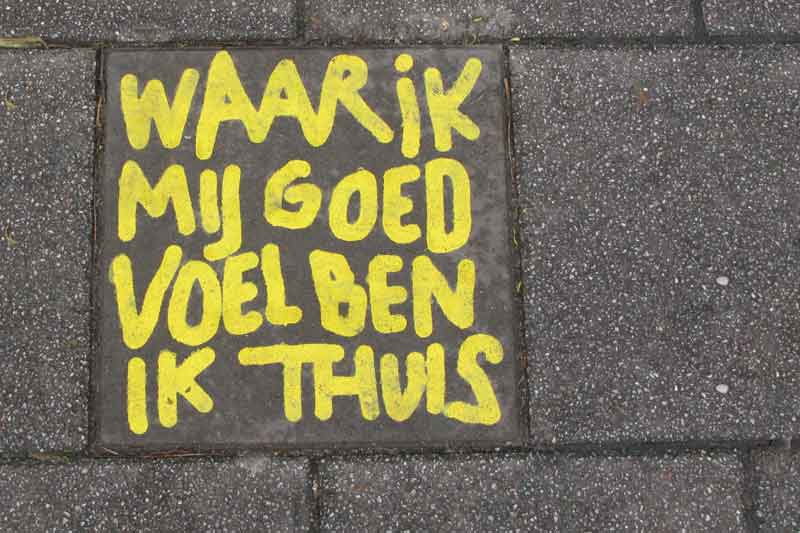 WAAR iK
MIJ GOED
VOEL BEN
IK THUIS